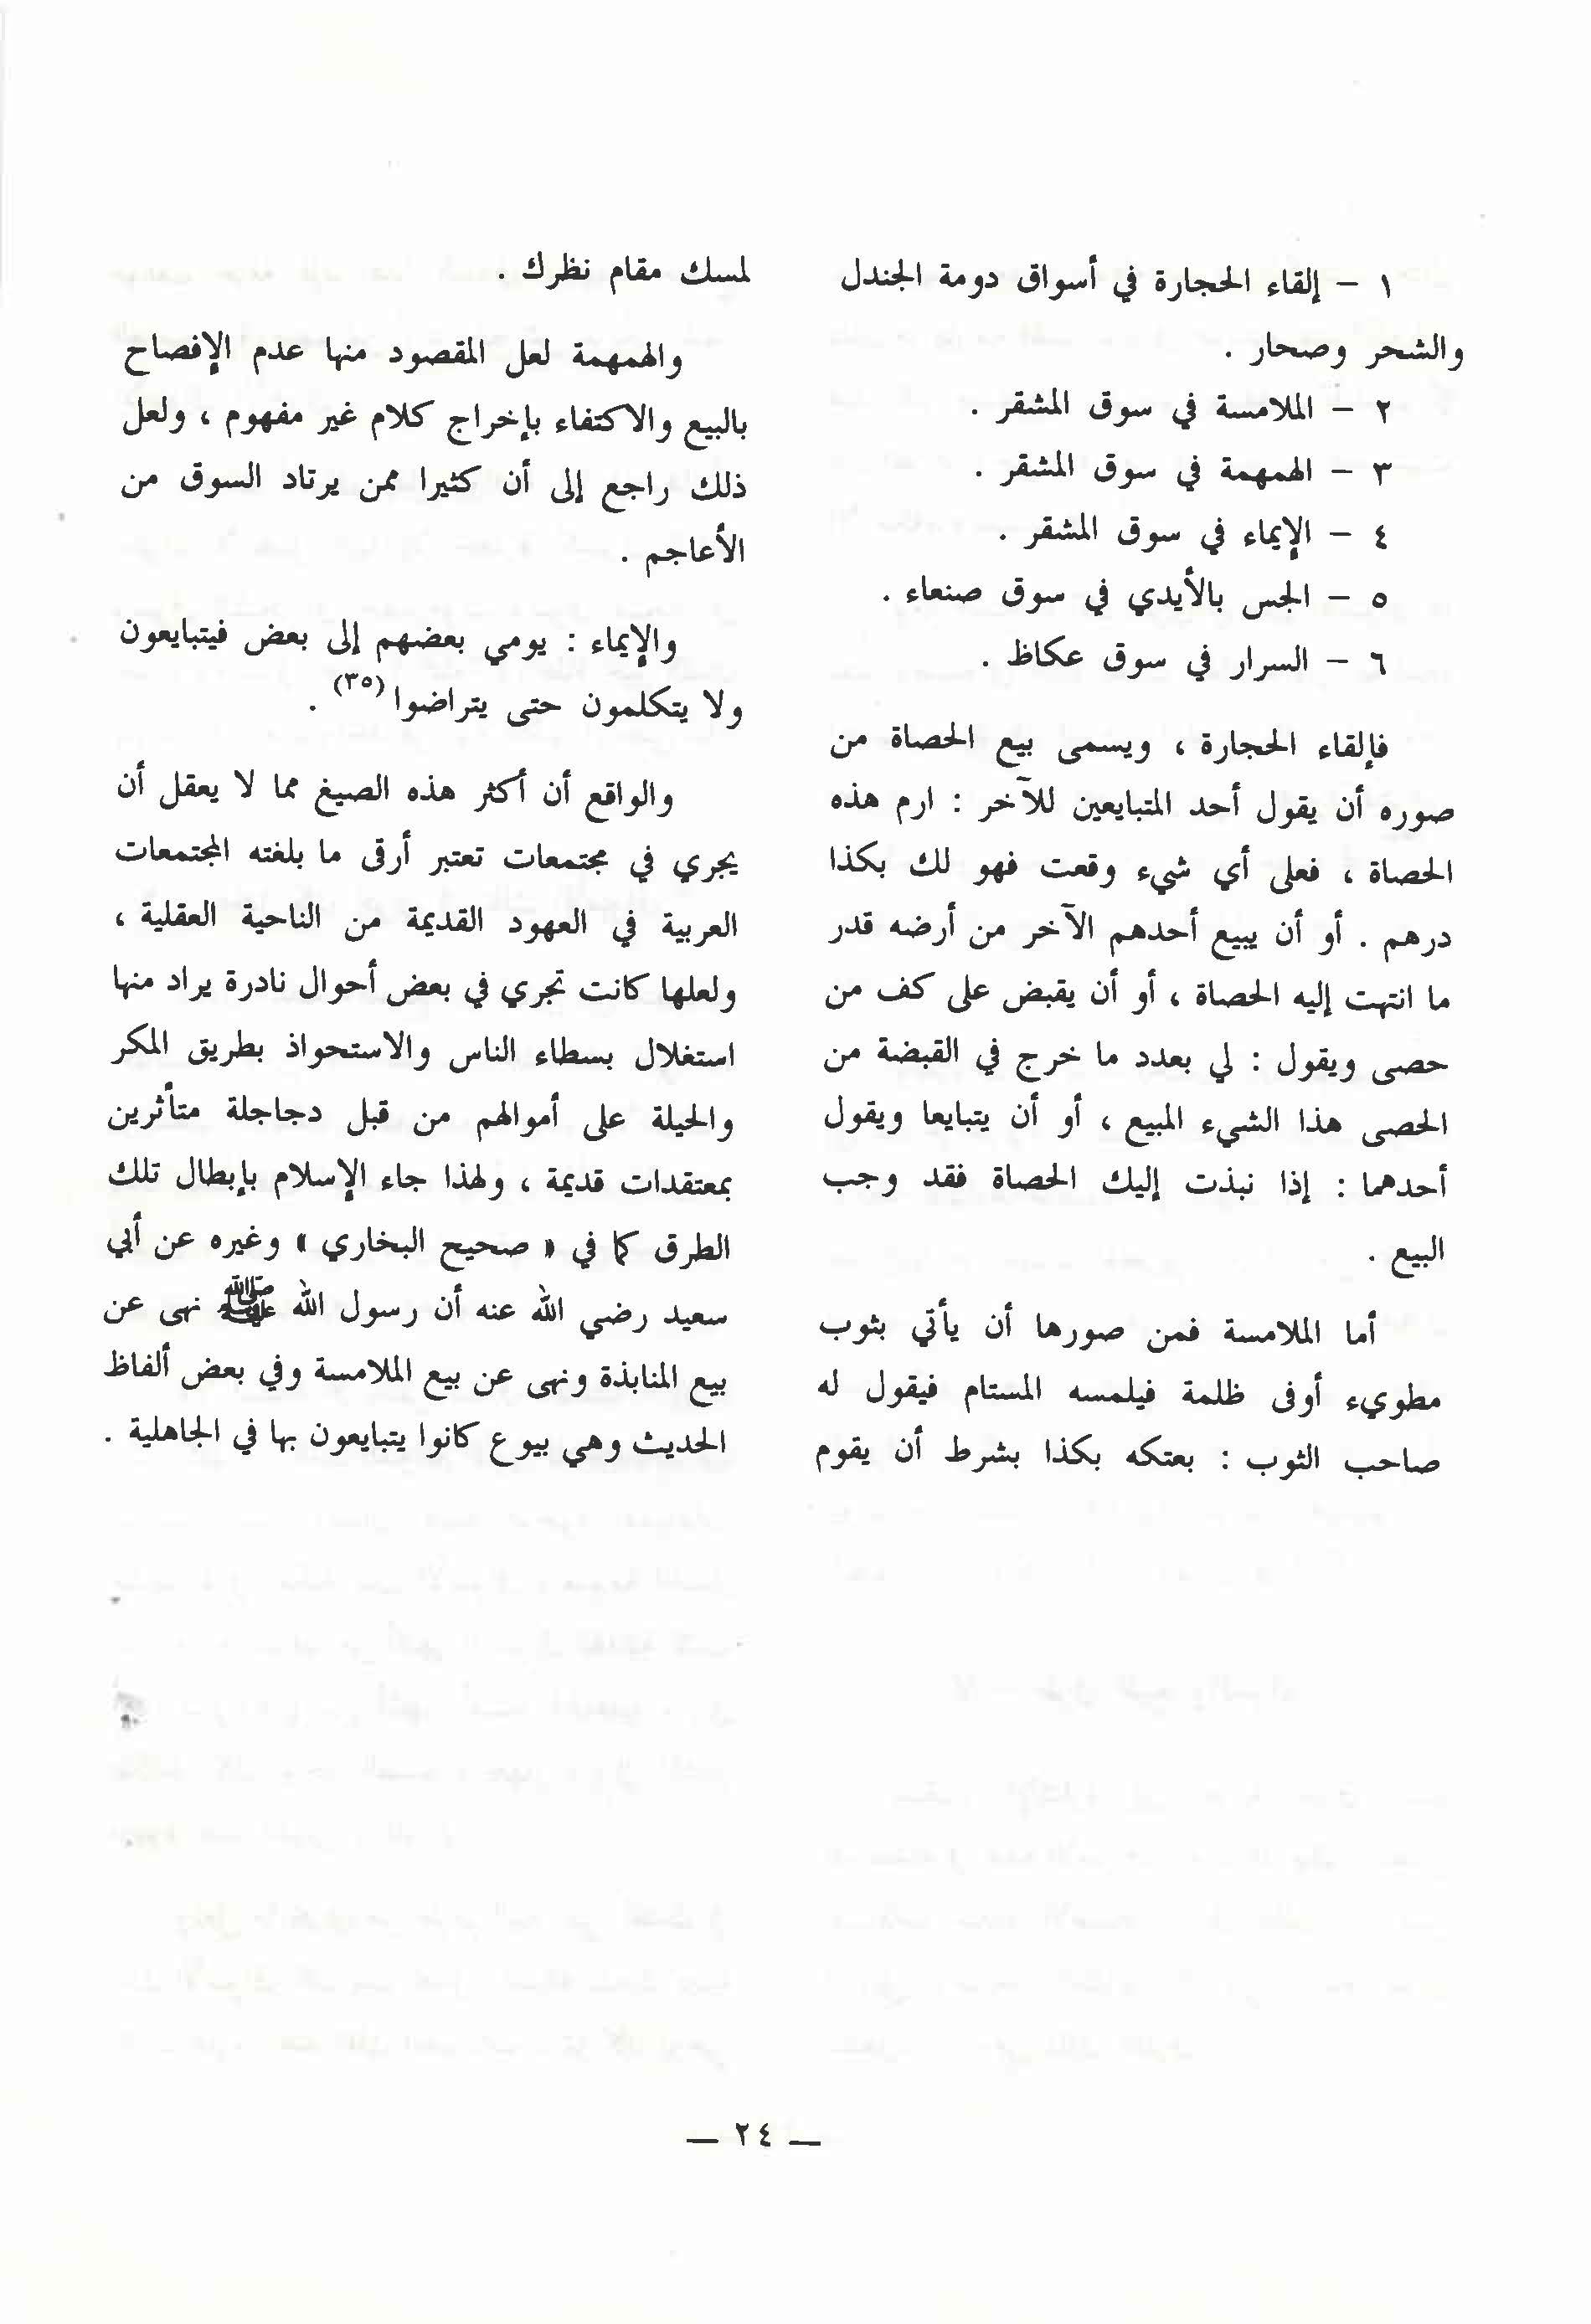 ١ – إلقاء الحجارة في أسواق دومة الجندل
والشحر وصحار .
٢ – الملامسة في سوق المشقر .
٣ – الهمهمة في سوق المشقر .
٤ – الإيماء في سوق المشقر .
٥ – الجس بالأيدي في سوق صنعاء .
٦ – السرار في سوق عكاظ .
فإلقاء الحجارة ، ويسمى بيع الحصاة من
صوره أن يقول أحد المتبايعين للآخر : ارم هذه
الحصاة ، فعلى أي شيء وقعت فهو لك بكذا
درهم . أو أن يبيع أحدهم الآخر من أرضه قدر
ما انتهت إليه الحصاة ، أو أن يقبض على كف من
حصى ويقول : لي بعدد ما خرج في القبضة من
الحصى هذا الشيء المبيع ، أو أن يتبايعا ويقول
أحدهما : إذا نبذت إليك الحصاة فقد وجب
البيع .
أما الملامسة فمن صورها أن يأتي بثوب
مطويء أوفى ظلمة فيلمسه المستام فيقول له
صاحب الثوب : بعتكه بكذا بشرط أن يقوم
لمسك مقام نظرك .
والهمهمة لعل المقصود منها عدم الإفصاح
بالبيع والاكتفاء بإخراج كلام غير مفهوم ، ولعل
ذلك راجع إلى أن كثيرا ممن يرتاد السوق من
الأعاجم .
والإيماء : يومي بعضهم إلى بعض فيتبايعون
ولا يتكلمون حتى يتراضوا (٣٥) .
والواقع أن أكثر هذه الصيغ مما لا يعقل أن
يجري في مجتمعات تعتبر أرقى ما بلغته المجتمعات
العربية في العهود القديمة من الناحية العقلية ،
ولعلها كانت تجري في بعض أحوال نادرة يراد منها
استغلال بسطاء الناس والاستحواذ بطريق المكر
والحيلة على أموالهم من قبل دجاجلة متأثرين
بمعتقدات قديمة ، ولهذا جاء الإسلام بإبطال تلك
الطرق كما في « صحيح البخاري » وغيره عن أبي
سعيد رضي الله عنه أن رسول الله ﷺ نهى عن
بيع المنابذة ونهى عن بيع الملامسة وفي بعض ألفاظ
الحديث وهي بيوع كانوا يتبايعون بها في الجاهلية .
— ٢٤ —